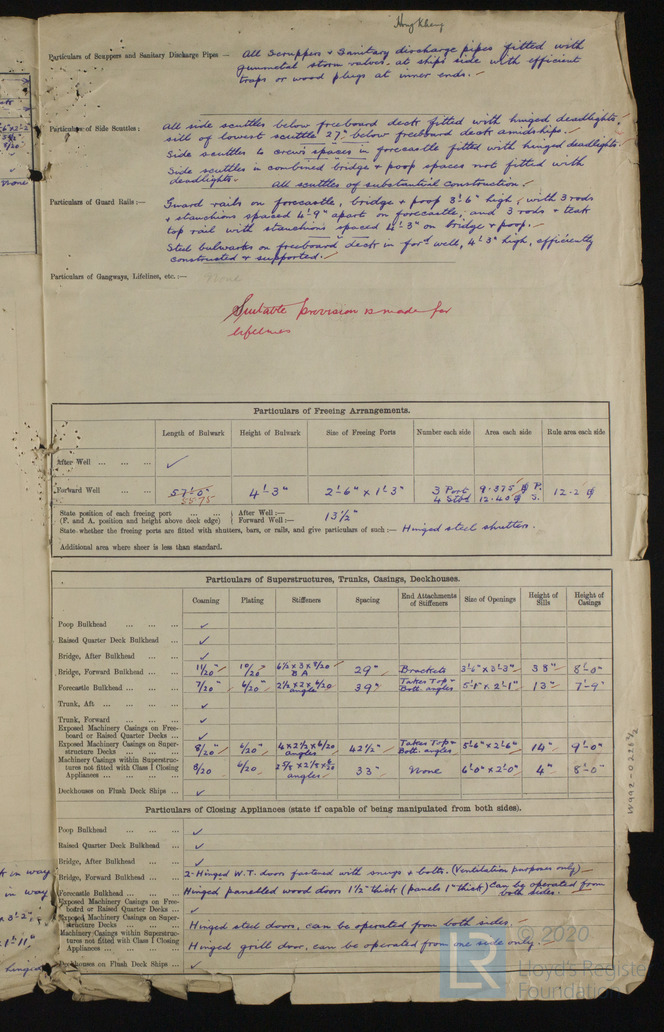 Hong Kheng
Particulars of Scuppers and Sanitary Discharge Pipes — All Scuppers & Sanitary discharge pipes fitted with
gunmetal storm valves. at ships side with efficient
traps or wood plugs at inner ends.
Particulars of Side Scuttles: All side scuttles below freeboard deck fitted with hinged deadlights,
sill of lowest scuttle 27" below freeboard deck amidships.
Side scuttles to crews spaces in forecastle fitted with hinged deadlights.
Side scuttles in combined bridge & poop spaces not fitted with
deadlights. All scuttles of substantial construction.
Particulars of Guard Rails:— Guard rails on forecastle, bridge & poop 3'-6" high, with 3 rods
& stanchions spaced 4'-9" apart on forecastle, and 3 rods & teak
top rail with stanchions spaced 4'-3" on bridge & poop.
Steel bulwarks on freeboard deck in ford well, 4'-3" high, efficiently
constructed & supported.
Particulars of Gangways, Lifelines, etc.:— None
Suitable provision is made for
lifelines
Particulars of Freeing Arrangements.
Length of Bulwark Height of Bulwark Size of Freeing Ports Number each side Area each side Rule area each side
After Well ... ... ... ✓
Forward Well ... ... 57'-0" 4'-3" 2'-6" x 1'-3" 3 Port 9.375 P. 12.2
55.75 4 Stbd 12.40 S.
State position of each freeing port ... ... After Well:—
(F. and A. position and height above deck edge) Forward Well:— 13½"
State whether the freeing ports are fitted with shutters, bars, or rails, and give particulars of such:— Hinged steel shutters.
Additional area where sheer is less than standard.
Particulars of Superstructures, Trunks, Casings, Deckhouses.
Coaming Plating Stiffeners Spacing End Attachments of Stiffeners Size of Openings Height of Sills Height of Casings
Poop Bulkhead ... ... ... ✓
Raised Quarter Deck Bulkhead ... ✓
Bridge, After Bulkhead ... ... ✓
Bridge, Forward Bulkhead ... ... 11/20" 10/20" 6½ x 3 x 9/20 BA 29" Brackets 3'-6" x 3'-3" 38" 8'-0"
Forecastle Bulkhead ... ... ... 7/20" 6/20" 2½ x 2 x 6/20 angles 39" Takes Top & Bott. angles 5'-6" x 2'-1" 13" 7'-9"
Trunk, Aft ... ... ... ✓
Trunk, Forward ... ... ✓
Exposed Machinery Casings on Freeboard or Raised Quarter Decks ... ✓
Exposed Machinery Casings on Superstructure Decks ... ... 8/20" 6/20" 4 x 2½ x 6/20 angles 42½" Takes Top & Bott. angles 5'-6" x 2'-6" 14" 9'-0"
Machinery Casings within Superstructures not fitted with Class I Closing Appliances ... ... ... 8/20 6/20 angles 33" None 6'-0" x 2'-0" 4" 8'-0"
Deckhouses on Flush Deck Ships ... ✓
Particulars of Closing Appliances (state if capable of being manipulated from both sides).
Poop Bulkhead ... ... ... ✓
Raised Quarter Deck Bulkhead ... ✓
Bridge, After Bulkhead ... ... ✓
Bridge, Forward Bulkhead ... ... 2-Hinged W.T. doors fastened with snugs & bolts. (Ventilation purposes only)
Forecastle Bulkhead ... ... ... Hinged panelled wood doors 1½" thick (panels 1" thick) Can be operated from both sides.
Exposed Machinery Casings on Freeboard or Raised Quarter Decks ... ✓
Exposed Machinery Casings on Superstructure Decks ... ... Hinged steel doors, can be operated from both sides.
Machinery Casings within Superstructures not fitted with Class I Closing Appliances ... ... ... Hinged grill door, can be operated from one side only.
Deckhouses on Flush Deck Ships ... ✓
None
in way
in way
1'-11"
hinged
© 2020
LR
Lloyd's Register
Foundation